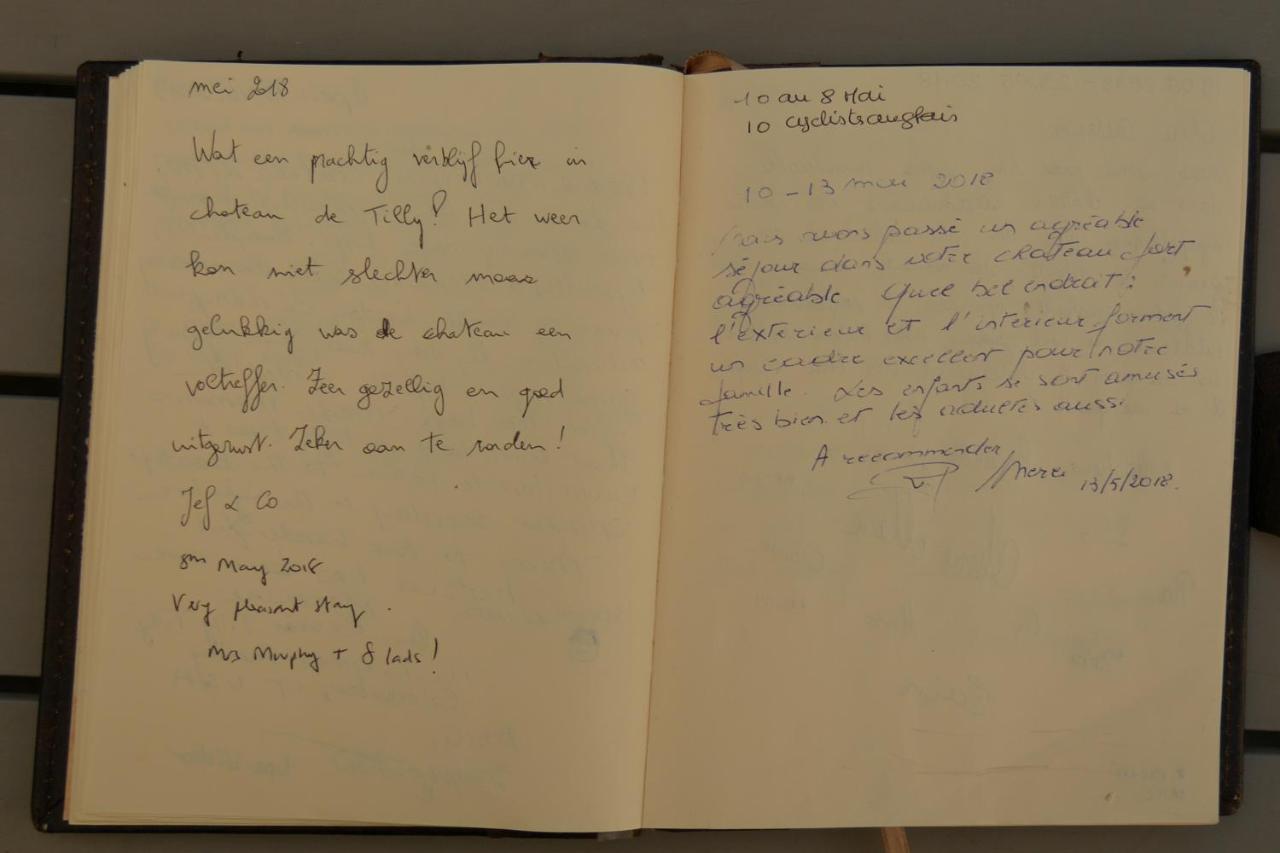 mei 2018
Wat een prachtig verblijf hier in
chateau de Tilly! Het weer
kon niet slechter maar
gelukkig was de chateau een
voltreffer. Zeer gezellig en goed
uitgerust. Zeker aan te raden!
Jef & Co
8th May 2018
Very pleasant stay.
Mrs Murphy + 8 lads!
10 au 8 Mai
10 cyclists anglais
10-13 mai 2018
Nous avons passé un agréable
séjour dans votre chateau fort
agréable Quel bel endroit:
l'exterieur et l'interieur forment
un cadre excellent pour notre
famille. Les enfants se sont amusés
très bien et les adultes aussi.
A recommender,
Merci 13/5/2018.